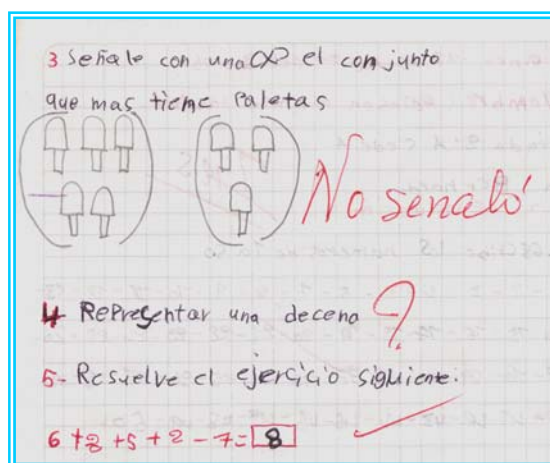 3 Señale con una ∝ el conjunto
que mas tiene Paletas
No senaló
4 Representar una decena ?
5- Resuelve el ejercicio siguiente.
6 +2 +5 +2 - 7= 8